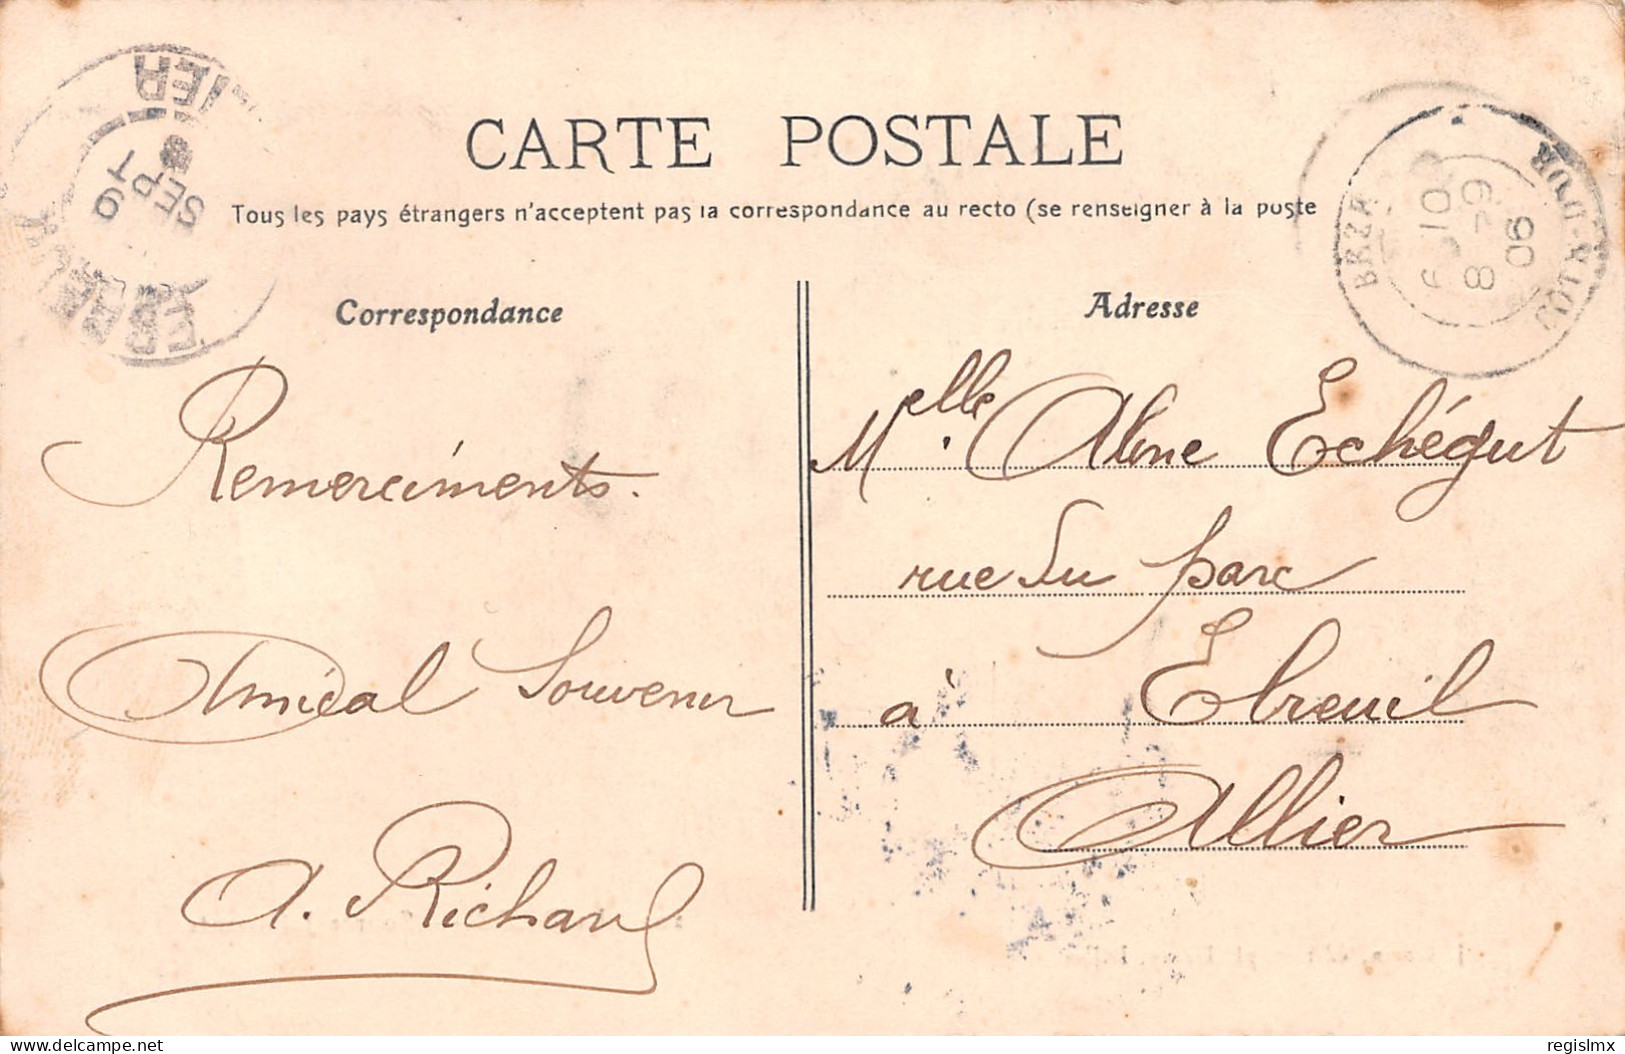 CARTE POSTALE
Tous les pays étrangers n'acceptent pas la correspondance au recto (se renseigner à la poste
Correspondance
Adresse
Remerciments.
Amical Souvenir
A. Richard
Melle Aline Echégut
rue du parc
à Ebreuil
Allier
SEPT
9
COTE-D'OR
delcampe.net
regislmx